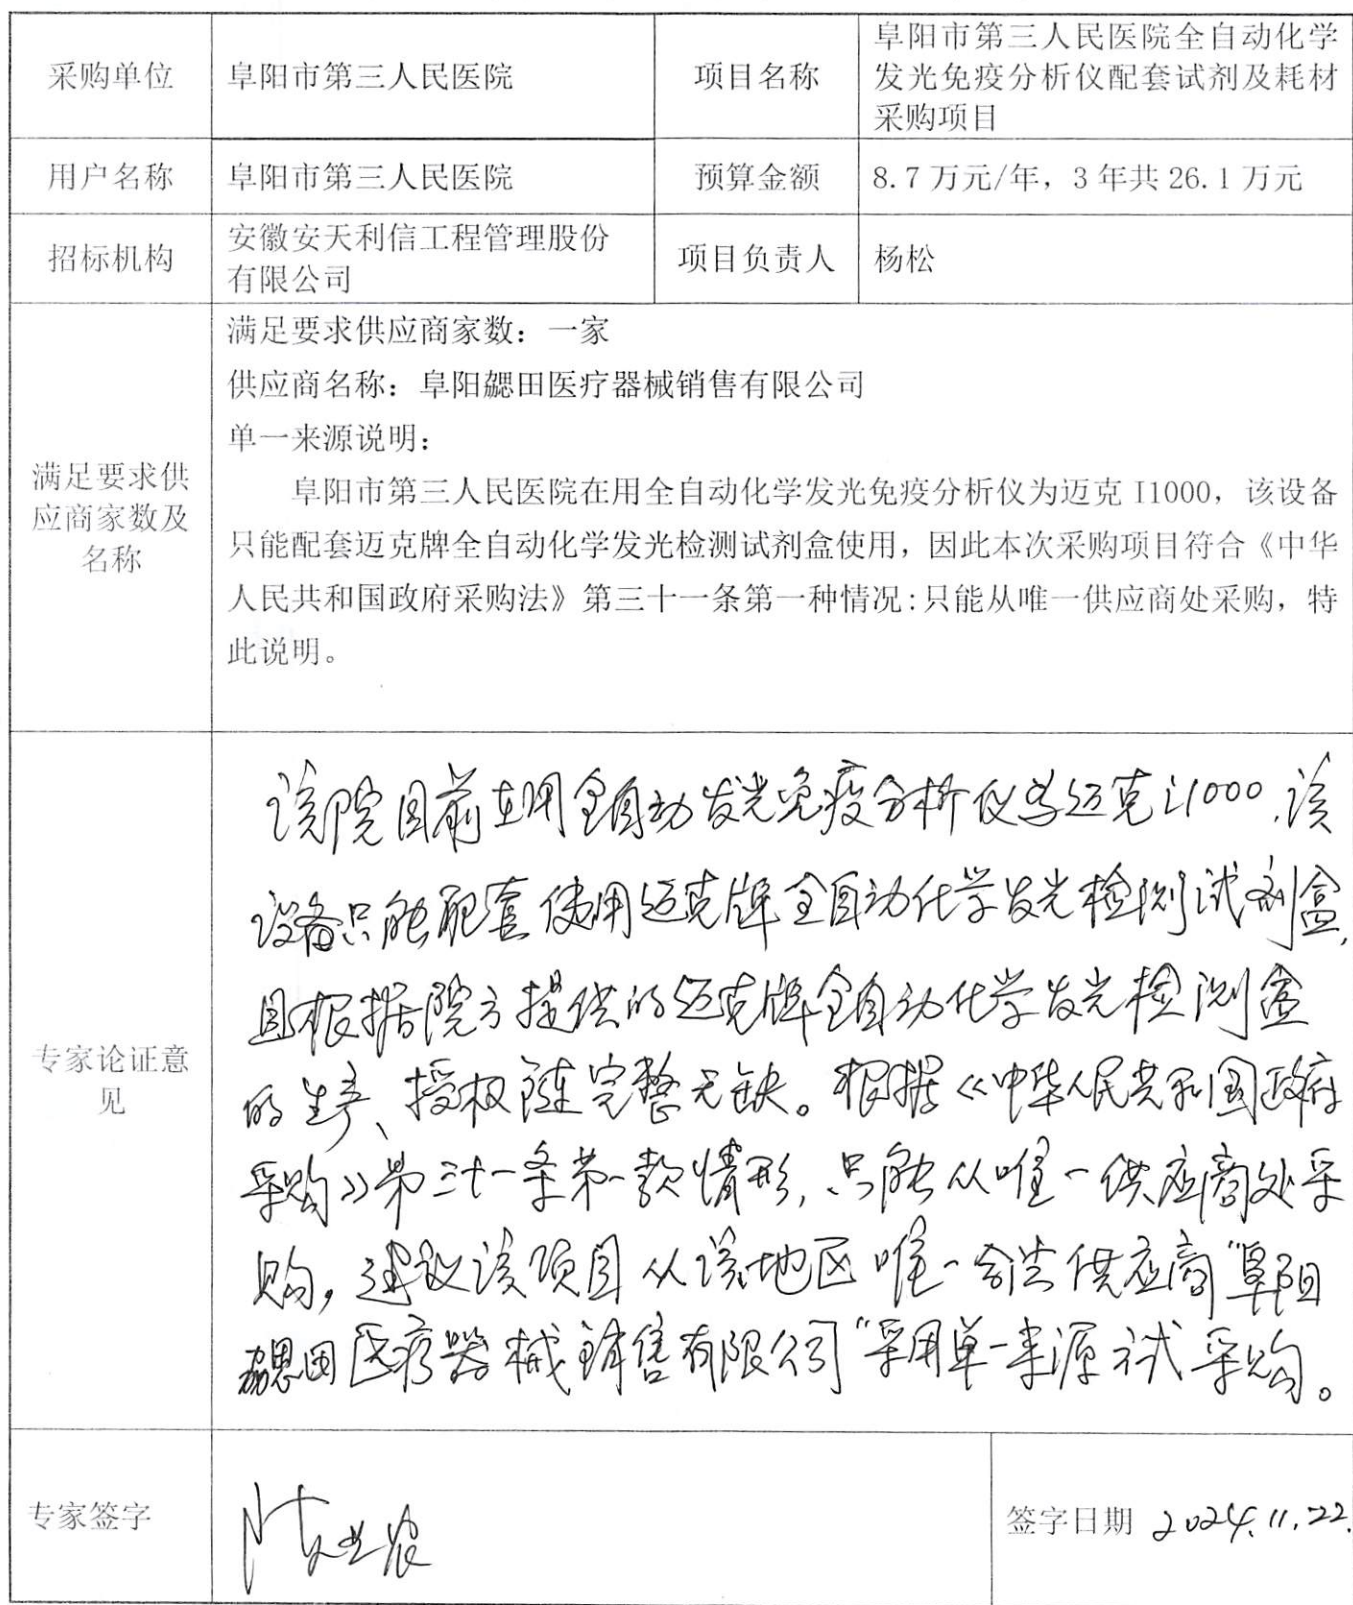 采购单位
阜阳市第三人民医院
项目名称
阜阳市第三人民医院全自动化学
发光免疫分析仪配套试剂及耗材
采购项目
用户名称
阜阳市第三人民医院
预算金额
8.7万元/年，3年共26.1万元
招标机构
安徽安天利信工程管理股份
有限公司
项目负责人
杨松
满足要求供
应商家数及
名称
满足要求供应商家数：一家
供应商名称：阜阳勰田医疗器械销售有限公司
单一来源说明：
阜阳市第三人民医院在用全自动化学发光免疫分析仪为迈克I1000，该设备
只能配套迈克牌全自动化学发光检测试剂盒使用，因此本次采购项目符合《中华
人民共和国政府采购法》第三十一条第一种情况:只能从唯一供应商处采购，特
此说明。
专家论证意
见
该院目前在用全自动发光免疫分析仪为迈克i1000，该
设备只能配套使用迈克牌全自动化学发光检测试剂盒，
且根据院方提供的迈克牌全自动化学发光检测盒
的生产、授权链完整无缺。根据《中华人民共和国政府
采购》第三十一条第一款情形，只能从唯一供应商处采
购，建议该项目从该地区唯一合法供应商"阜阳
勰田医疗器械销售有限公司"采用单一来源方式采购。
专家签字
签字日期 2024.11.22.